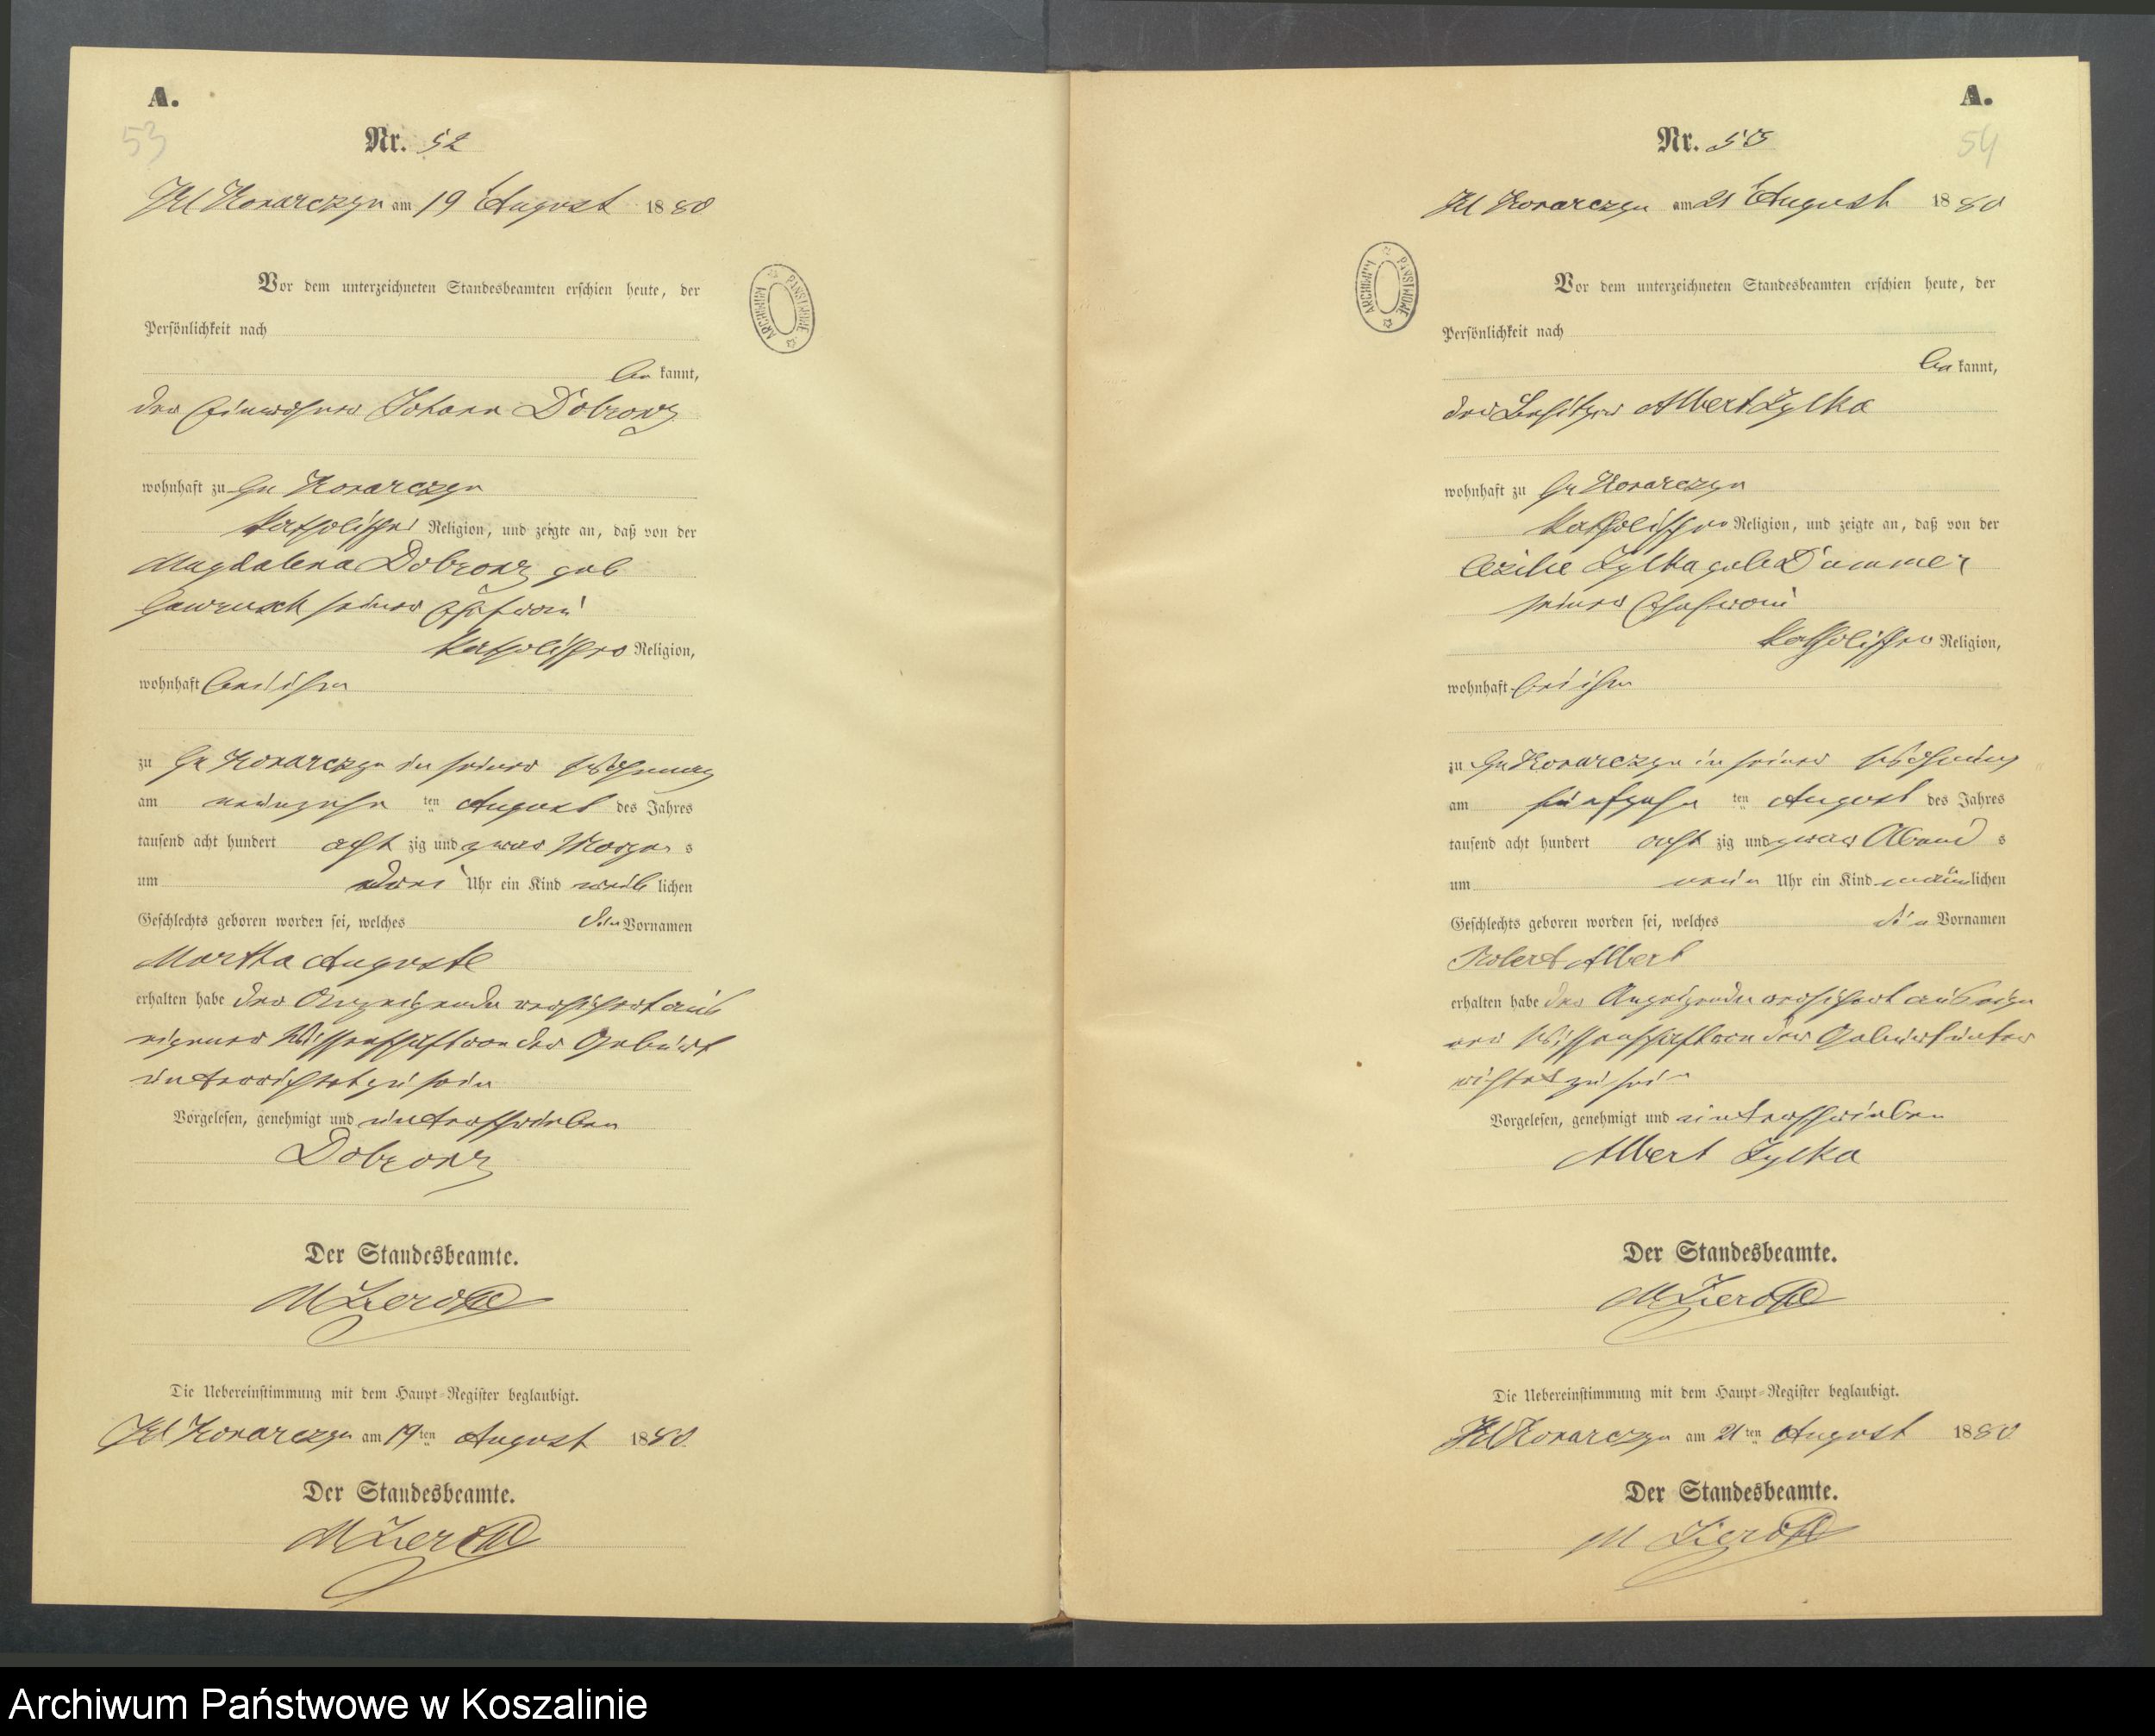 A.
53
Nr. 52
Kl Konarczyn am 19 August 1880
Vor dem unterzeichneten Standesbeamten erschien heute, der
Persönlichkeit nach
be kannt,
der Einwohner Johann Dobronz
wohnhaft zu Gr Konarczyn
katholischer Religion, und zeigte an, daß von der
Magdalena Dobronz geb
seiner Ehefrau
katholischer Religion,
wohnhaft bei ihm
zu Gr Konarczyn in seiner Wohnung
am neunzehn ten August des Jahres
tausend acht hundert acht zig und zwar Morgen s
um drei Uhr ein Kind weib lichen
Geschlechts geboren worden sei, welches den Vornamen
Martha Auguste
erhalten habe der Anzeigende versichert aus
eigener Wissenschaft von der Geburt
unterrichtet zu sein
Vorgelesen, genehmigt und unterschrieben
Dobronz
Der Standesbeamte.
Die Uebereinstimmung mit dem Haupt-Register beglaubigt.
Kl Konarczyn am 19ten August 1880.
Der Standesbeamte.
A.
54
Nr. 53
Kl Konarczyn am 21 August 1880
ARCHIWUM PAŃSTWOWE
Vor dem unterzeichneten Standesbeamten erschien heute, der
Persönlichkeit nach
be kannt,
der Besitzer Albert Zylka
wohnhaft zu Gr Konarczyn
katholischer Religion, und zeigte an, daß von der
Cezilie Zylka geb Dummer
seiner Ehefrau
katholischer Religion,
wohnhaft bei ihm
zu Gr Konarczyn in seiner Wohnung
am fünfzehn ten August des Jahres
tausend acht hundert acht zig und zwar Abend s
um neun Uhr ein Kind männlichen
Geschlechts geboren worden sei, welches den Vornamen
Robert Albert
erhalten habe der Anzeigende versichert aus eigen
er Wissenschaft von der Geburt unter
richtet zu sein
Vorgelesen, genehmigt und unterschrieben
Albert Zylka
Der Standesbeamte.
Die Uebereinstimmung mit dem Haupt-Register beglaubigt.
Kl Konarczyn am 21ten August 1880.
Der Standesbeamte.
Archiwum Państwowe w Koszalinie